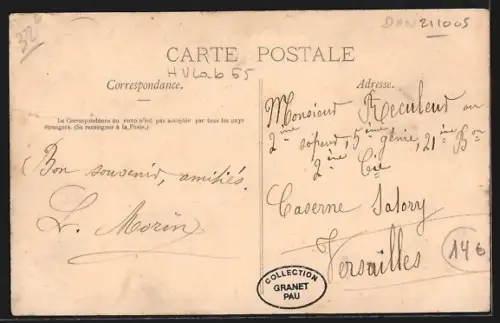 32 6
DAN 211005
CARTE POSTALE
HVLab 65
Correspondance.
Adresse.
La Correspondance au recto n'est pas acceptée par tous les pays
étrangers. (Se renseigner à la Poste.)
Bon souvenir, amitiés.
L. Morin
Monsieur Reculeud au
2ème sapeur, 5ème génie, 21ème Bon
2ème Cie
Caserne Satory
Versailles
14€
COLLECTION
GRANET
PAU